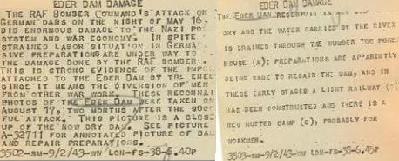 EDER DAM DAMAGE
THE RAF BOMBER COMMAND'S ATTACK ON
GERMAN DAMS ON THE NIGHT OF MAY 16
DID ENORMOUS DAMAGE TO THE NAZI
WAR ECONOMY. IN SPITE
STRAINED LABOR SITUATION IN GERMAN
PREPARATIONS ARE UNDER WAY T
THE DAMAGE DONE BY THE RAF BOMBER
THIS IS STRONG EVIDENCE OF THE
ATTACHED TO THE EDER DAM BY THE ENEM
SINCE IT MEANS THE DIVERSION OF MEN
FROM OTHER WAR WORK. THESE
PHOTOS OF THE EDER DAM WERE TAKEN ON
AUGUST 17, TWO MONTHS AFTER THE
FUL ATTACK. THIS PICTURE IS A CLOSE
UP OF THE NOW DRY DAM. SEE PICTURE
FOR ANNOTATED PICTURE OF DAM
AND REPAIR PREPARATIONS.
3502-MW-9/2/43-WW LON-FS-38-6.40P
EDER DAM DAMAGE
THE EDER DAM RESERVOIR
DRY AND THE WATER CARRIED BY THE RIVER
IS DRAINED THROUGH THE NUMBER TWO POWER
HOUSE (A); PREPARATIONS ARE APPARENTLY
BEING MADE TO REPAIR THE DAM, AND IN
THESE EARLY STAGES A LIGHT RAILWAY
HAS BEEN CONSTRUCTED AND THERE IS A
NEW HUTTED CAMP (C), PROBABLY FOR
WORKMEN.
3503-MW-9/2/43-WW LON-FS-38-6.45P